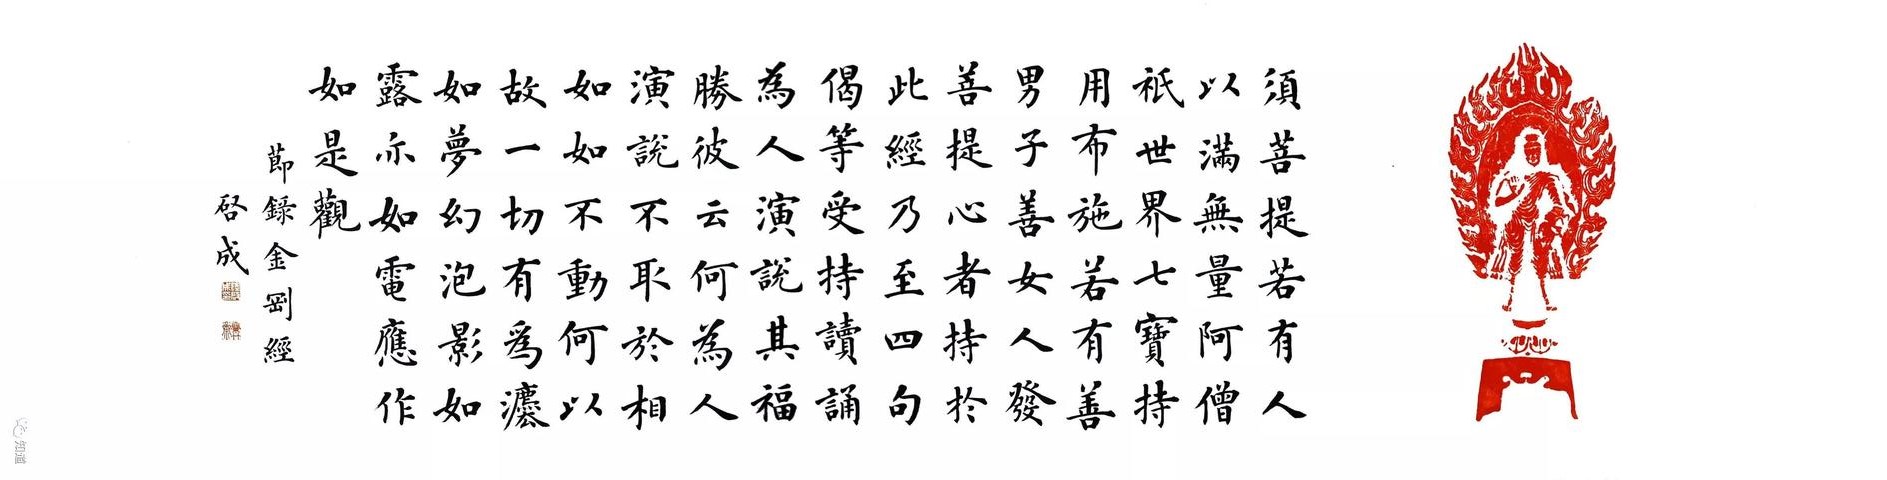 須菩提若有人
以滿無量阿僧
祇世界七寶持
用布施若有善
男子善女人發
善提心者持於
此經乃至四句
偈等受持讀誦
為人演說其福
勝彼云何為人
演說不取於相
如如不動何以
故一切有為灋
如夢幻泡影如
露亦如電應作
如是觀
節錄金剛經
启成